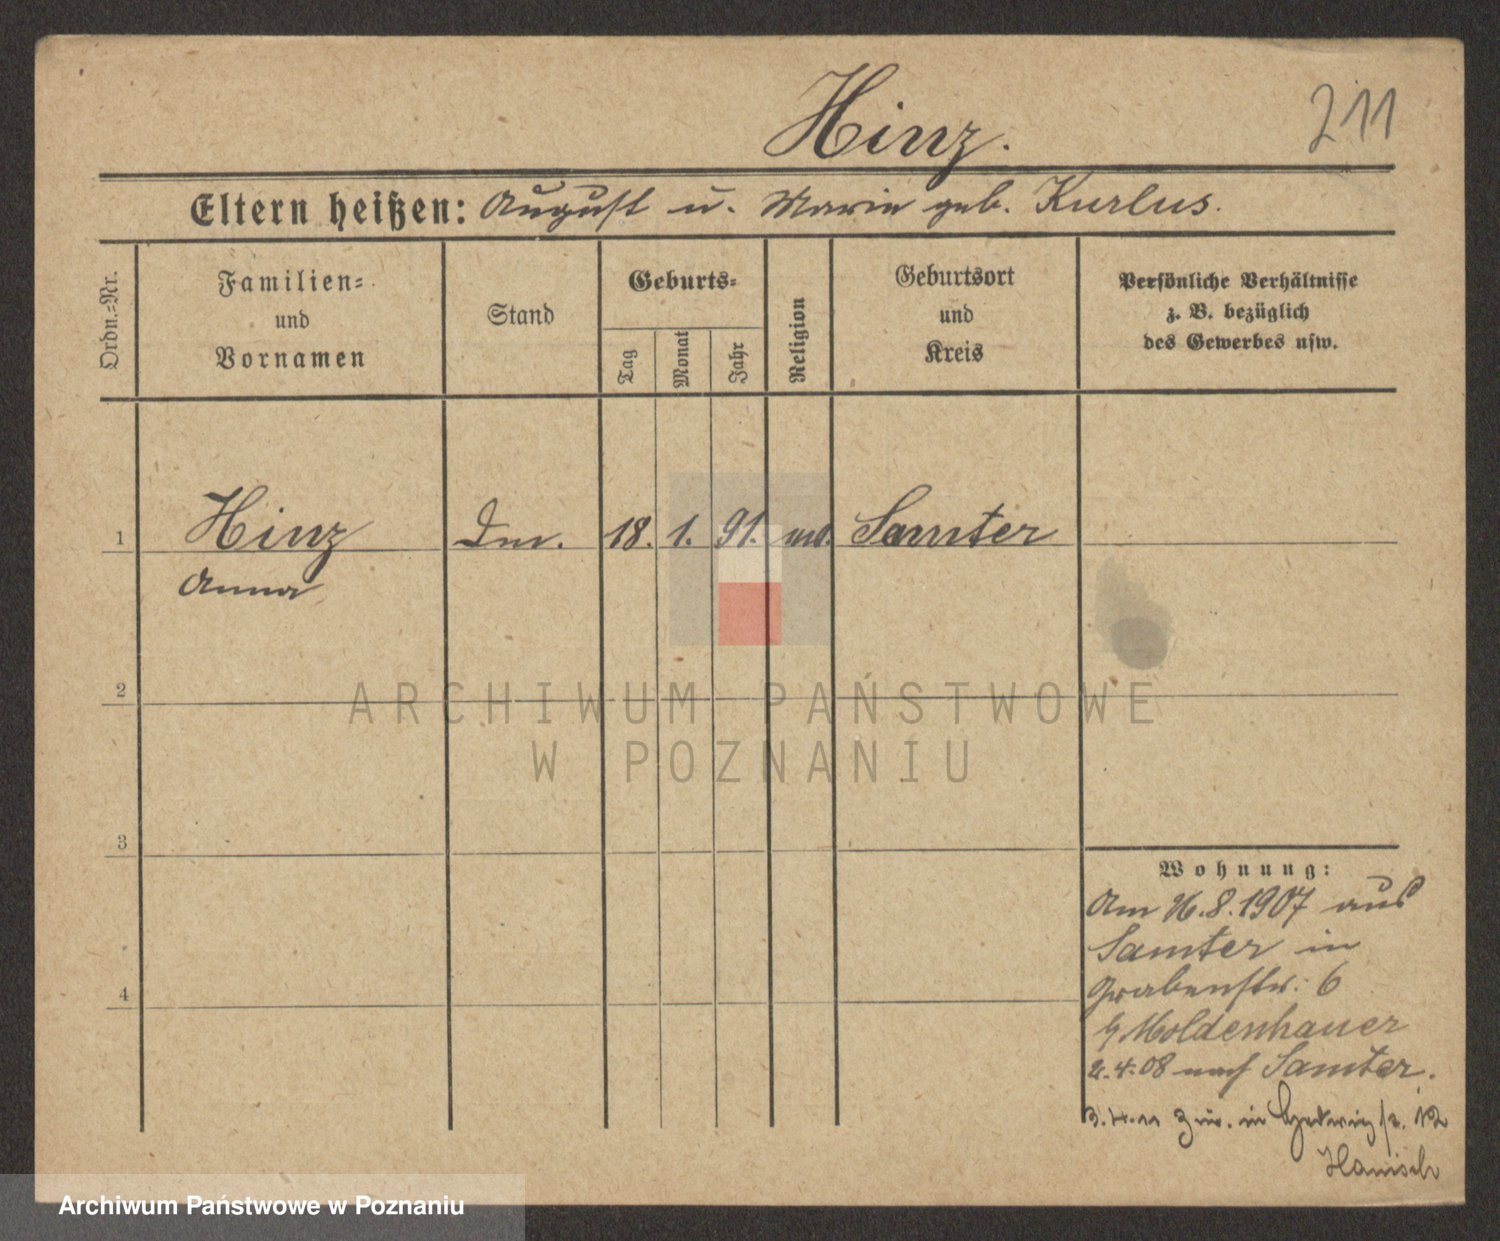 Hinz.
211
Eltern heißen: August u. Marie geb. Kurlus.
Ordn.-Nr.
Familien-
und
Vornamen
Stand
Geburts-
Tag
Monat
Jahr
Religion
Geburtsort
und
Kreis
Persönliche Verhältnisse
z. B. bezüglich
des Gewerbes usw.
1 Hinz 18. 1. 91. Samter
Anna
2
ARCHIWUM PAŃSTWOWE
W POZNANIU
3
Wohnung:
Am 8.1907 aus
Samter in
Grabenstr. 6
Moldenhauer
2.4.08 nach Samter.
4
3.4.11 in 12
Hanisch
Archiwum Państwowe w Poznaniu